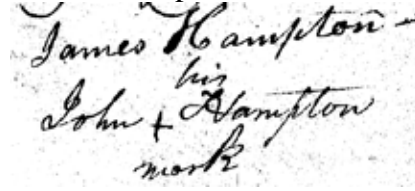 James Hampton -
his
John + Hampton
mark